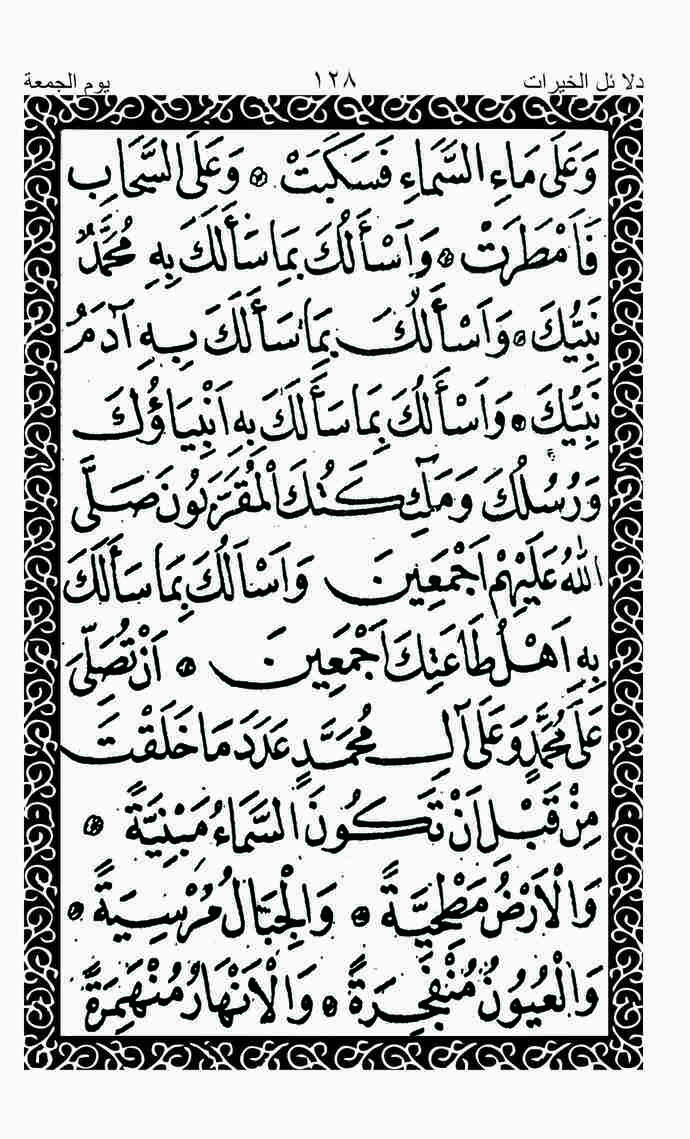 دلائل الخيرات ١٢٨ يوم الجمعة
وَعَلَى مَاءِ السَّمَاءِ فَسَكَبَتْ ۞ وَعَلَى السَّحَابِ
فَاَمْطَرَتْ ۞ وَاَسْأَلُكَ بِمَا سَأَلَكَ بِهِ مُحَمَّدٌ
نَبِيُّكَ ۞ وَاَسْأَلُكَ بِمَا سَأَلَكَ بِهِ آدَمُ
نَبِيُّكَ ۞ وَاَسْأَلُكَ بِمَا سَأَلَكَ بِهِ اَنْبِيَاؤُكَ
وَرُسُلُكَ وَمَلٰٓئِكَتُكَ الْمُقَرَّبُونَ صَلَّى
اللهُ عَلَيْهِمْ اَجْمَعِينَ وَاَسْاَلُكَ بِمَا سَأَلَكَ
بِهِ اَهْلُ طَاعَتِكَ اَجْمَعِينَ ۞ اَنْ تُصَلِّيَ
عَلَى مُحَمَّدٍ وَعَلَى آلِ مُحَمَّدٍ عَدَدَ مَا خَلَقْتَ
مِنْ قَبْلِ اَنْ تَكُونَ السَّمَاءُ مَبْنِيَّةً ۞
وَالْاَرْضُ مَطْحِيَّةً ۞ وَالْجِبَالُ مُرْسِيَةً ۞
وَالْعُيُونُ مُنْفَجِرَةً ۞ وَالْاَنْهَارُ مُنْهَمِرَةً